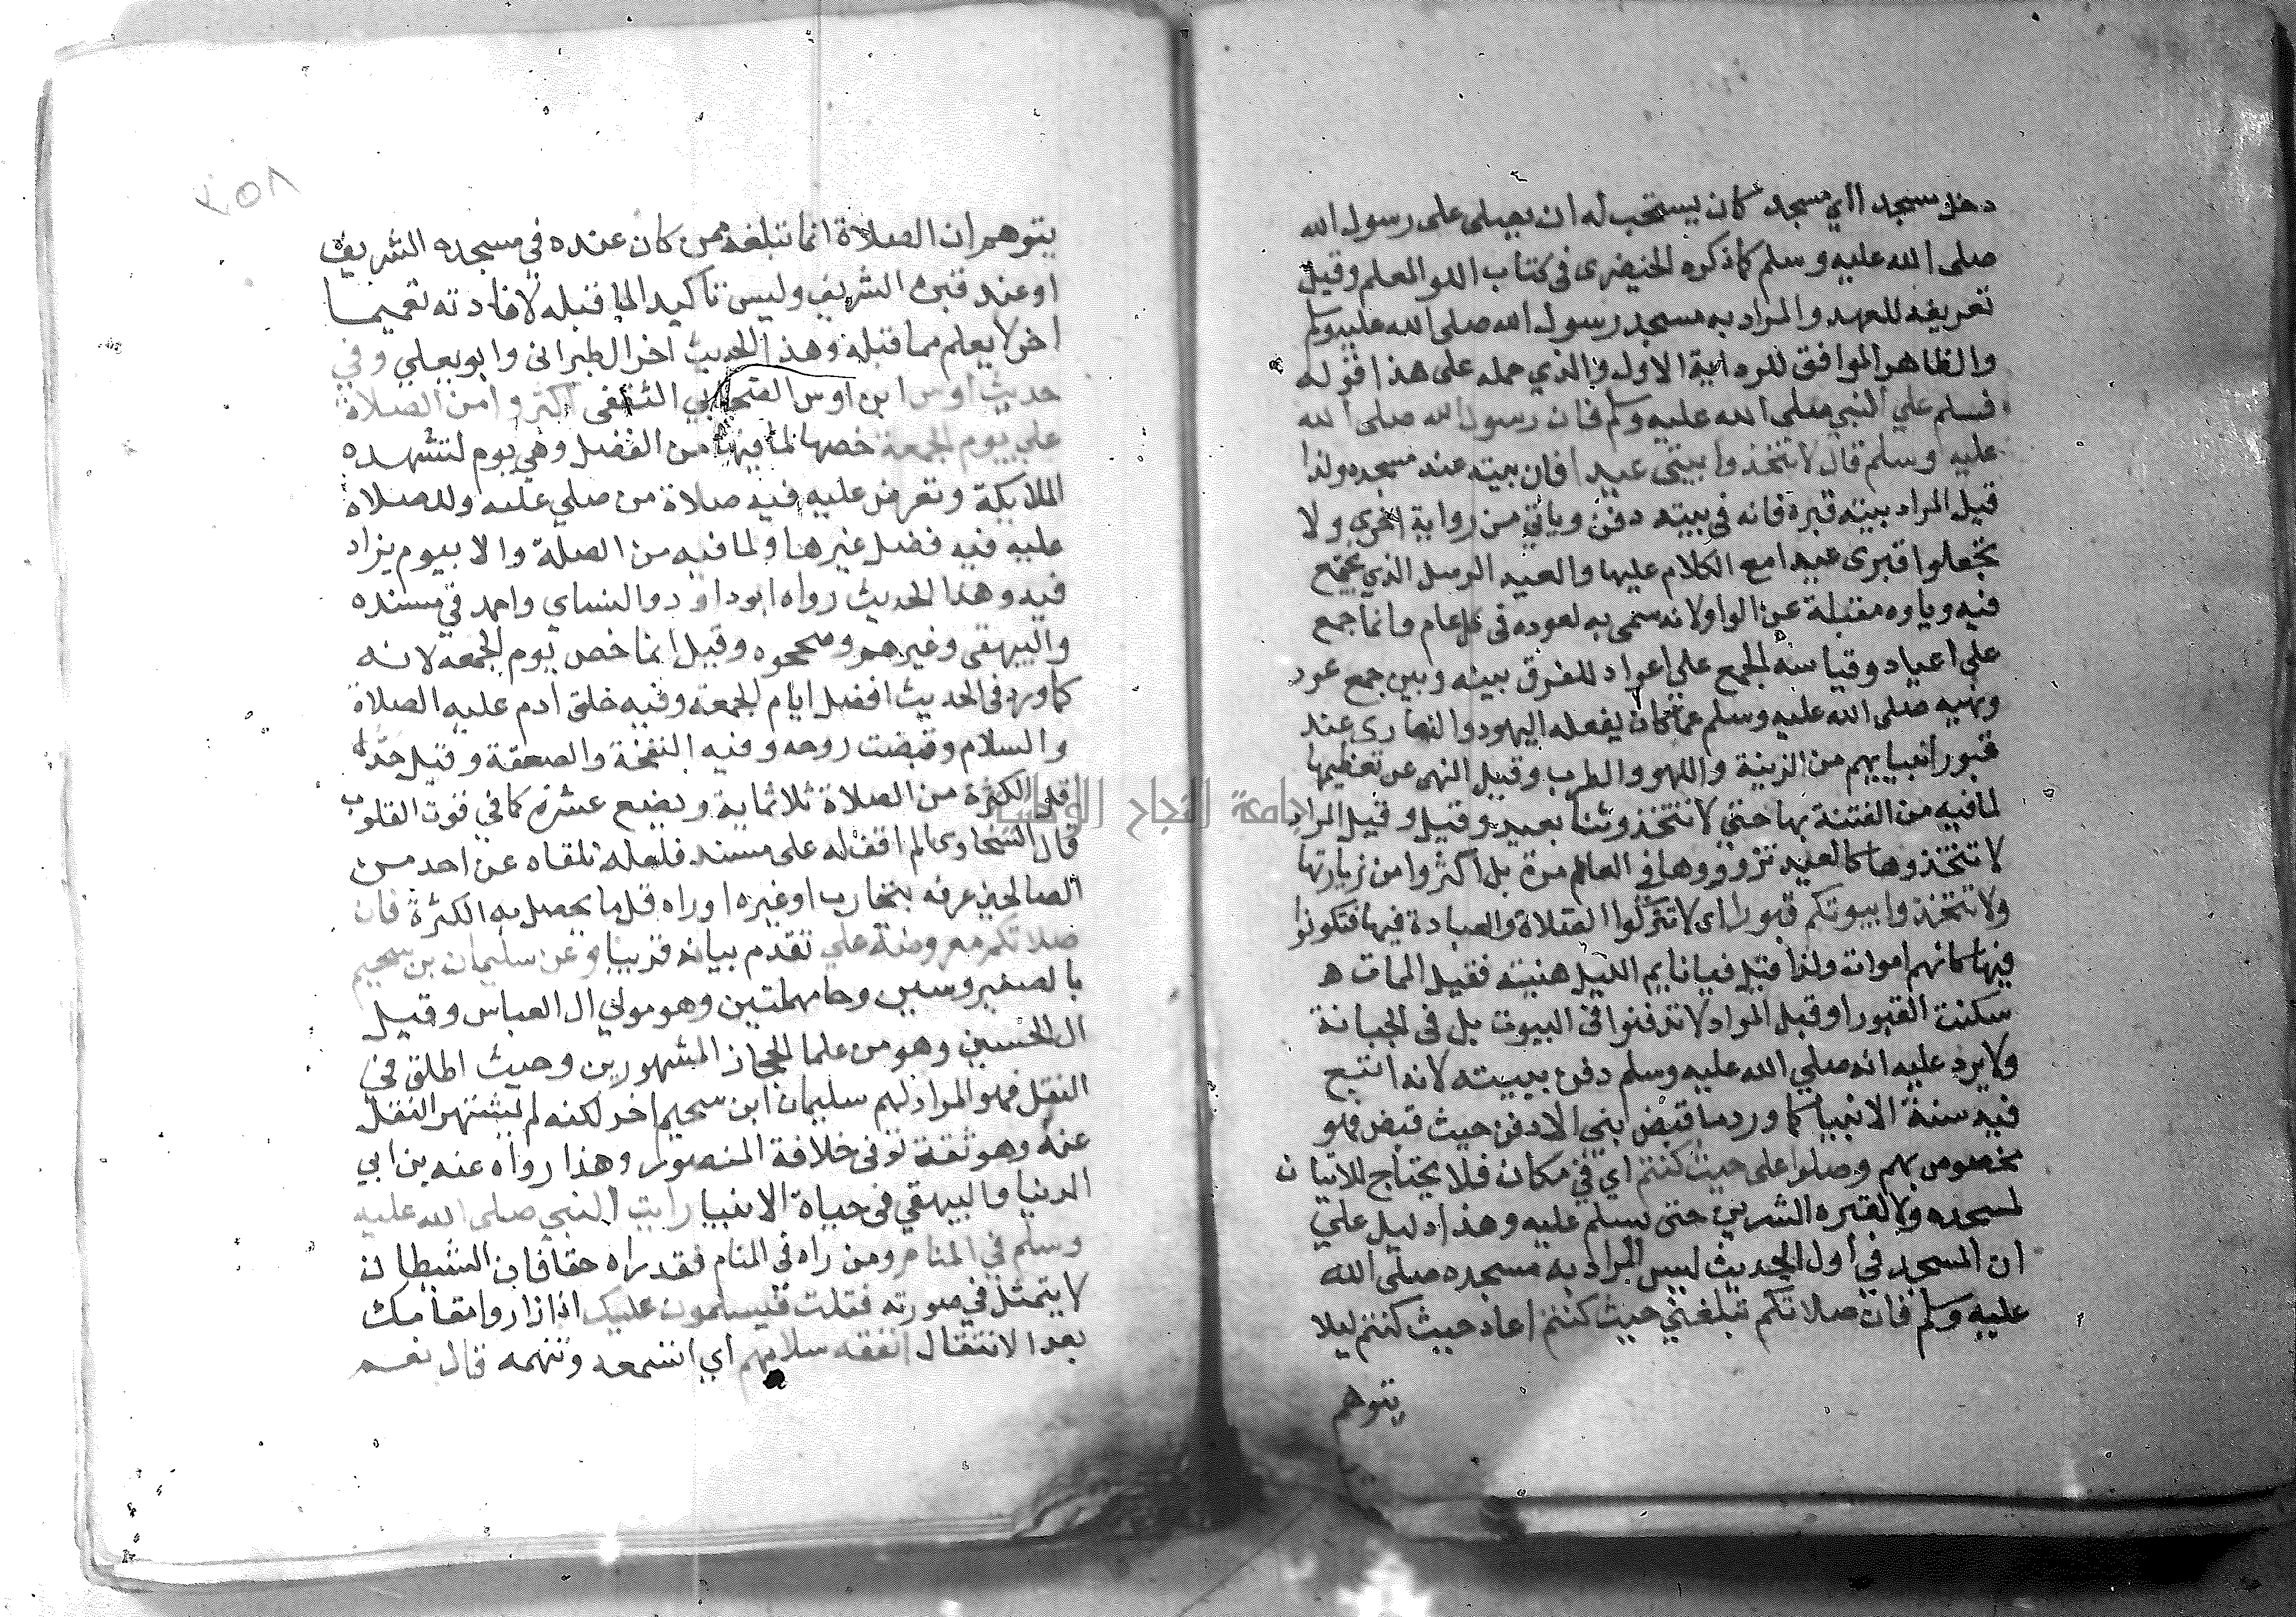 دخل مسجدا اي مسجد كان يستحب له ان يصلى على رسول الله
صلى الله عليه وسلم كما ذكره الخيضرى فى كتاب اللو المعلم وقيل
تعريفه للعهد والمراد به مسجد رسول الله صلى الله عليه وسلم
والظاهر الموافق للرواية الاول والذي حمله على هذا قوله
فسلم علي النبي صلى الله عليه وسلم فان رسول الله صلى الله
عليه وسلم قال لا تتخذوا بيتى عيدا فان بيته عند مسجده ولذا
قيل المراد بيته قبره فانه فى بيته دفن وياتى من رواية اخرى ولا
تجعلوا قبرى عيدا مع الكلام عليها والعيد الذي يجتمع
فيه وياوه مقبلة عن الواو لانه سمى به لعوده فى كل عام وانما جمع
على اعياد وقياسه الجمع علي اعواد للفرق بينه وبين جمع عود
ونهيه صلى الله عليه وسلم عما كان يفعله اليهود والنصارى عند
قبور انبيايهم من الزينة واللهو والطرب وقيل النهى عن تعظيمها
لما فيه من الفتنة بها حتى لا تتخذ وثنا يعبد وقيل وقيل المراد
لا تتخذوها كالعيد تزوروها في العام مرة بل اكثروا من زيارتها
ولا تتخذوا بيوتكم قبورا اى لا تتركوا الصلاة والعبادة فيها فتكونوا
فيها كانهم اموات ولذا قيل فيها نايم الليل هنيته فقيل الممات ه
سكنت القبور او قيل المراد لا تدفنوا فى البيوت بل فى الجبانة
ولا يرد عليه انه صلي الله عليه وسلم دفن ببيته لانه اتبع
فيه سنة الانبيا كما ورد ما قبض نبي الا دفن حيث قبض فهو
مخصوص بهم وصلوا على حيث كنتم اي في مكان فلا يحتاج للاتيان
لمسجده ولا لقبره الشريف حتى يسلم عليه وهذا دليل علي
ان المسجد في اول الحديث ليس المراد به مسجده صلى الله
عليه وسلم فان صلاتكم تبلغني حيث كنتم اعاد حيث كنتم ليلا
يتوهم
يتوهم ان الصلاة انما تبلغه ممن كان عنده في مسجده الشريف
او عند قبره الشريف وليس تاكيدا لما قبله لافادته تعميما
اخر لا يعلم مما قبله وهذا الحديث اخر الطبرانى وابو يعلي وفي
حديث اوس ابن اوس الصحابي الثقفى اكثروا من الصلاة
علي يوم الجمعة خصها لما فيها من الفضل وهي يوم لتشهده
الملايكة وتعرض عليه فيه صلاة من صلي عليه وللصلاة
عليه فيه فضل غيرها ولما فيه من الصلة والا بيوم يزاد
فيه وهذا الحديث رواه ابو داود والنساي واحمد في مسنده
والبيهقى وغيرهم وصححوه وقيل انما خص يوم الجمعه لانه
كما ورد فى الحديث افضل ايام الجمعة وفيه خلق ادم عليه الصلاة
والسلام وقبضت روحه وفيه النفخة والصعقة وقيل حد
قل الكثرة من الصلاة ثلاثماية وبضع عشرة كما في قوت القلوب
قال السخاوى لم اقف له على مسند فلعله تلقاه عن احد من
الصالحين عرفه بتجارب او غيره او راه قل ما يحصل به الكثرة فان
صلاتكم معروضة علي تقدم بيانه قريبا وعن سليمان بن سحيم
بالصغير وسين وحا مهملتين وهو مولي ال العباس وقيل
ال الحسين وهو من علما الحجاز المشهورين وحيث اطلق في
النقل فهو المراد لهم سليمان ابن سحيم اخر لكنه لم يشتهر النقل
عنه وهو ثقة توفى خلافة المنصور وهذا رواه عنه بن ابي
الدنيا والبيهقي فى حياة الانبيا رايت النبي صلى الله عليه
وسلم في المنام ومن راه فى المنام فقد راه حقا فان الشيطان
لا يتمثل في صورته فقلت فيسلمون عليك اذا زاروا مقامك
بعد الانتقال اتفقه سلامهم اي اتسمعه وتفهمه قال نعم